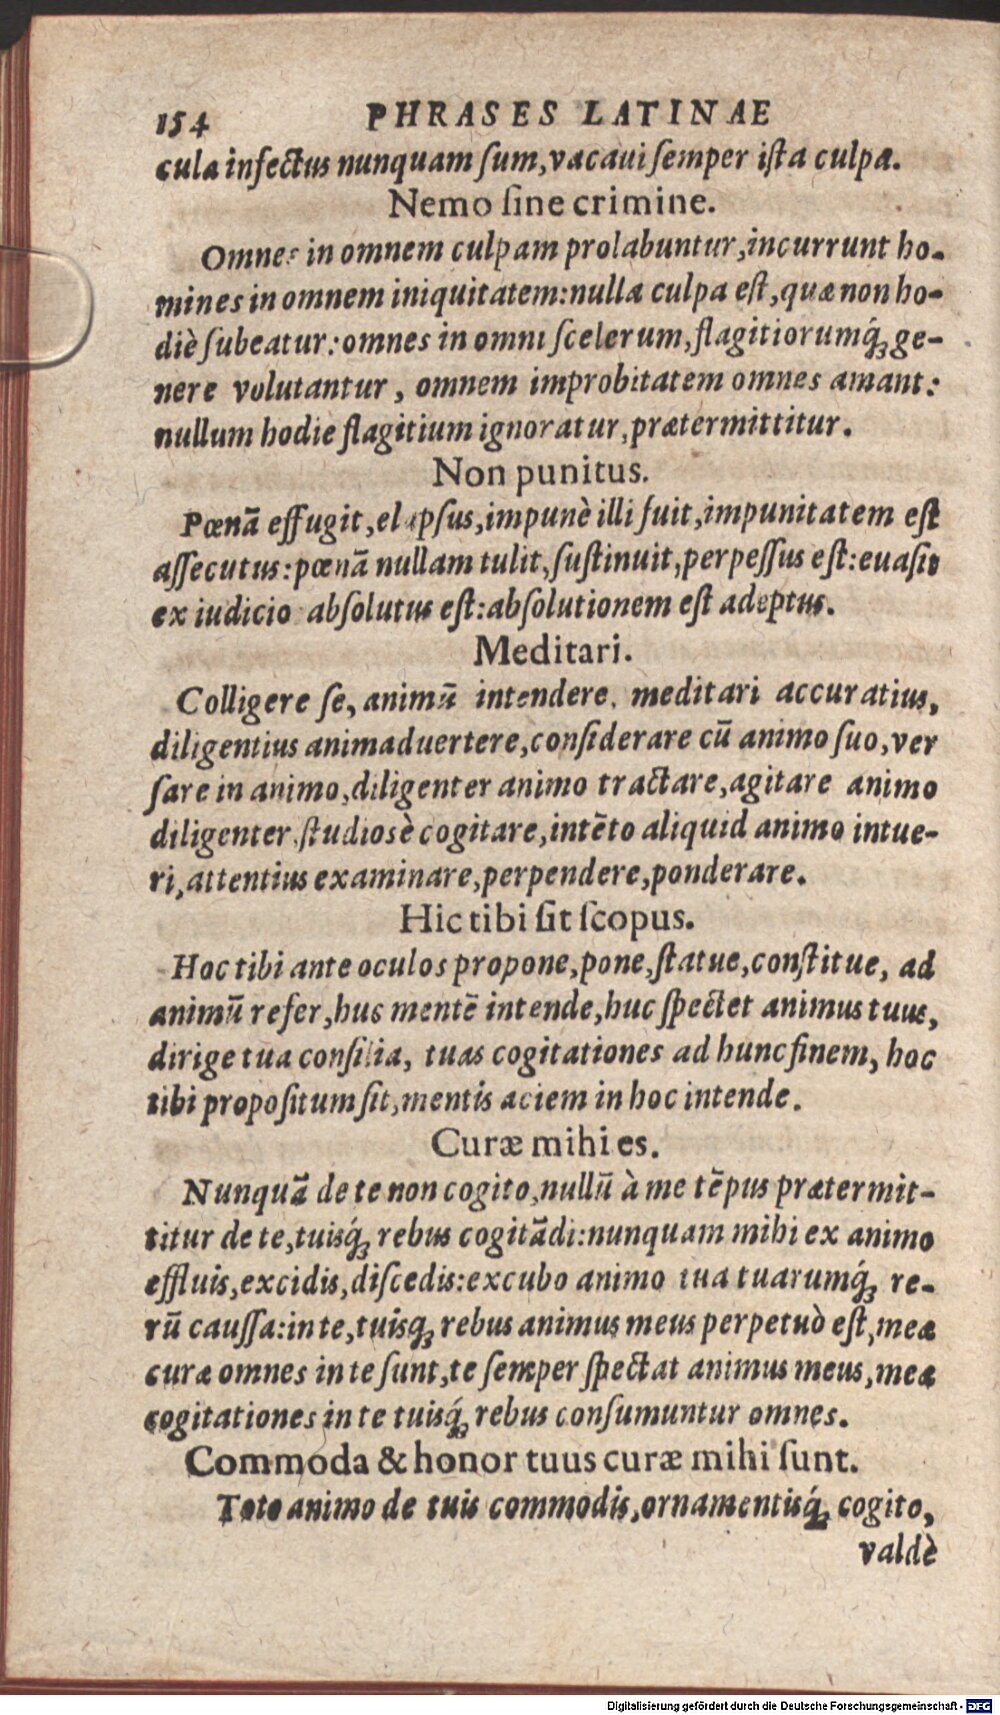 154 PHRASES LATINAE
cula infectus nunquam ſum, vacaui ſemper iſta culpa.
Nemo ſine crimine.
Omnes in omnem culpam prolabuntur, incurrunt ho-
mines in omnem iniquitatem: nulla culpa eſt, quæ non ho-
diè ſubeatur: omnes in omni ſcelerum, flagitiorumq́; ge-
nere volutantur, omnem improbitatem omnes amant:
nullum hodie flagitium ignoratur, prætermittitur.
Non punitus.
Pœnā effugit, elapſus, impunè illi fuit, impunitatem eſt
aſſecutus: pœnā nullam tulit, ſuſtinuit, perpeſſus eſt: euaſit
ex iudicio abſolutus eſt: abſolutionem eſt adeptus.
Meditari.
Colligere ſe, animū intendere, meditari accuratius,
diligentius animaduertere, conſiderare cū animo ſuo, ver
ſare in animo, diligenter animo tractare, agitare animo
diligenter, ſtudiosè cogitare, intēto aliquid animo intue-
ri, attentius examinare, perpendere, ponderare.
Hic tibi ſit ſcopus.
Hoc tibi ante oculos propone, pone, ſtatue, conſtitue, ad
animū refer, huc mentē intende, huc ſpectet animus tuus,
dirige tua conſilia, tuas cogitationes ad hunc finem, hoc
tibi propoſitum ſit, mentis aciem in hoc intende.
Curæ mihi es.
Nunquā de te non cogito, nullū à me tēpus prætermit-
titur de te, tuisq́; rebus cogitādi: nunquam mihi ex animo
effluis, excidis, diſcedis: excubo animo tua tuarumq́; re-
rū cauſſa: in te, tuisq́; rebus animus meus perpetuò eſt, meæ
curæ omnes in te ſunt, te ſemper ſpectat animus meus, meæ
cogitationes in te tuisq́; rebus conſumuntur omnes.
Commoda & honor tuus curæ mihi ſunt.
Toto animo de tuis commodis, ornamentisq́; cogito,
valdè
Digitalisierung gefördert durch die Deutsche Forschungsgemeinschaft - DFG